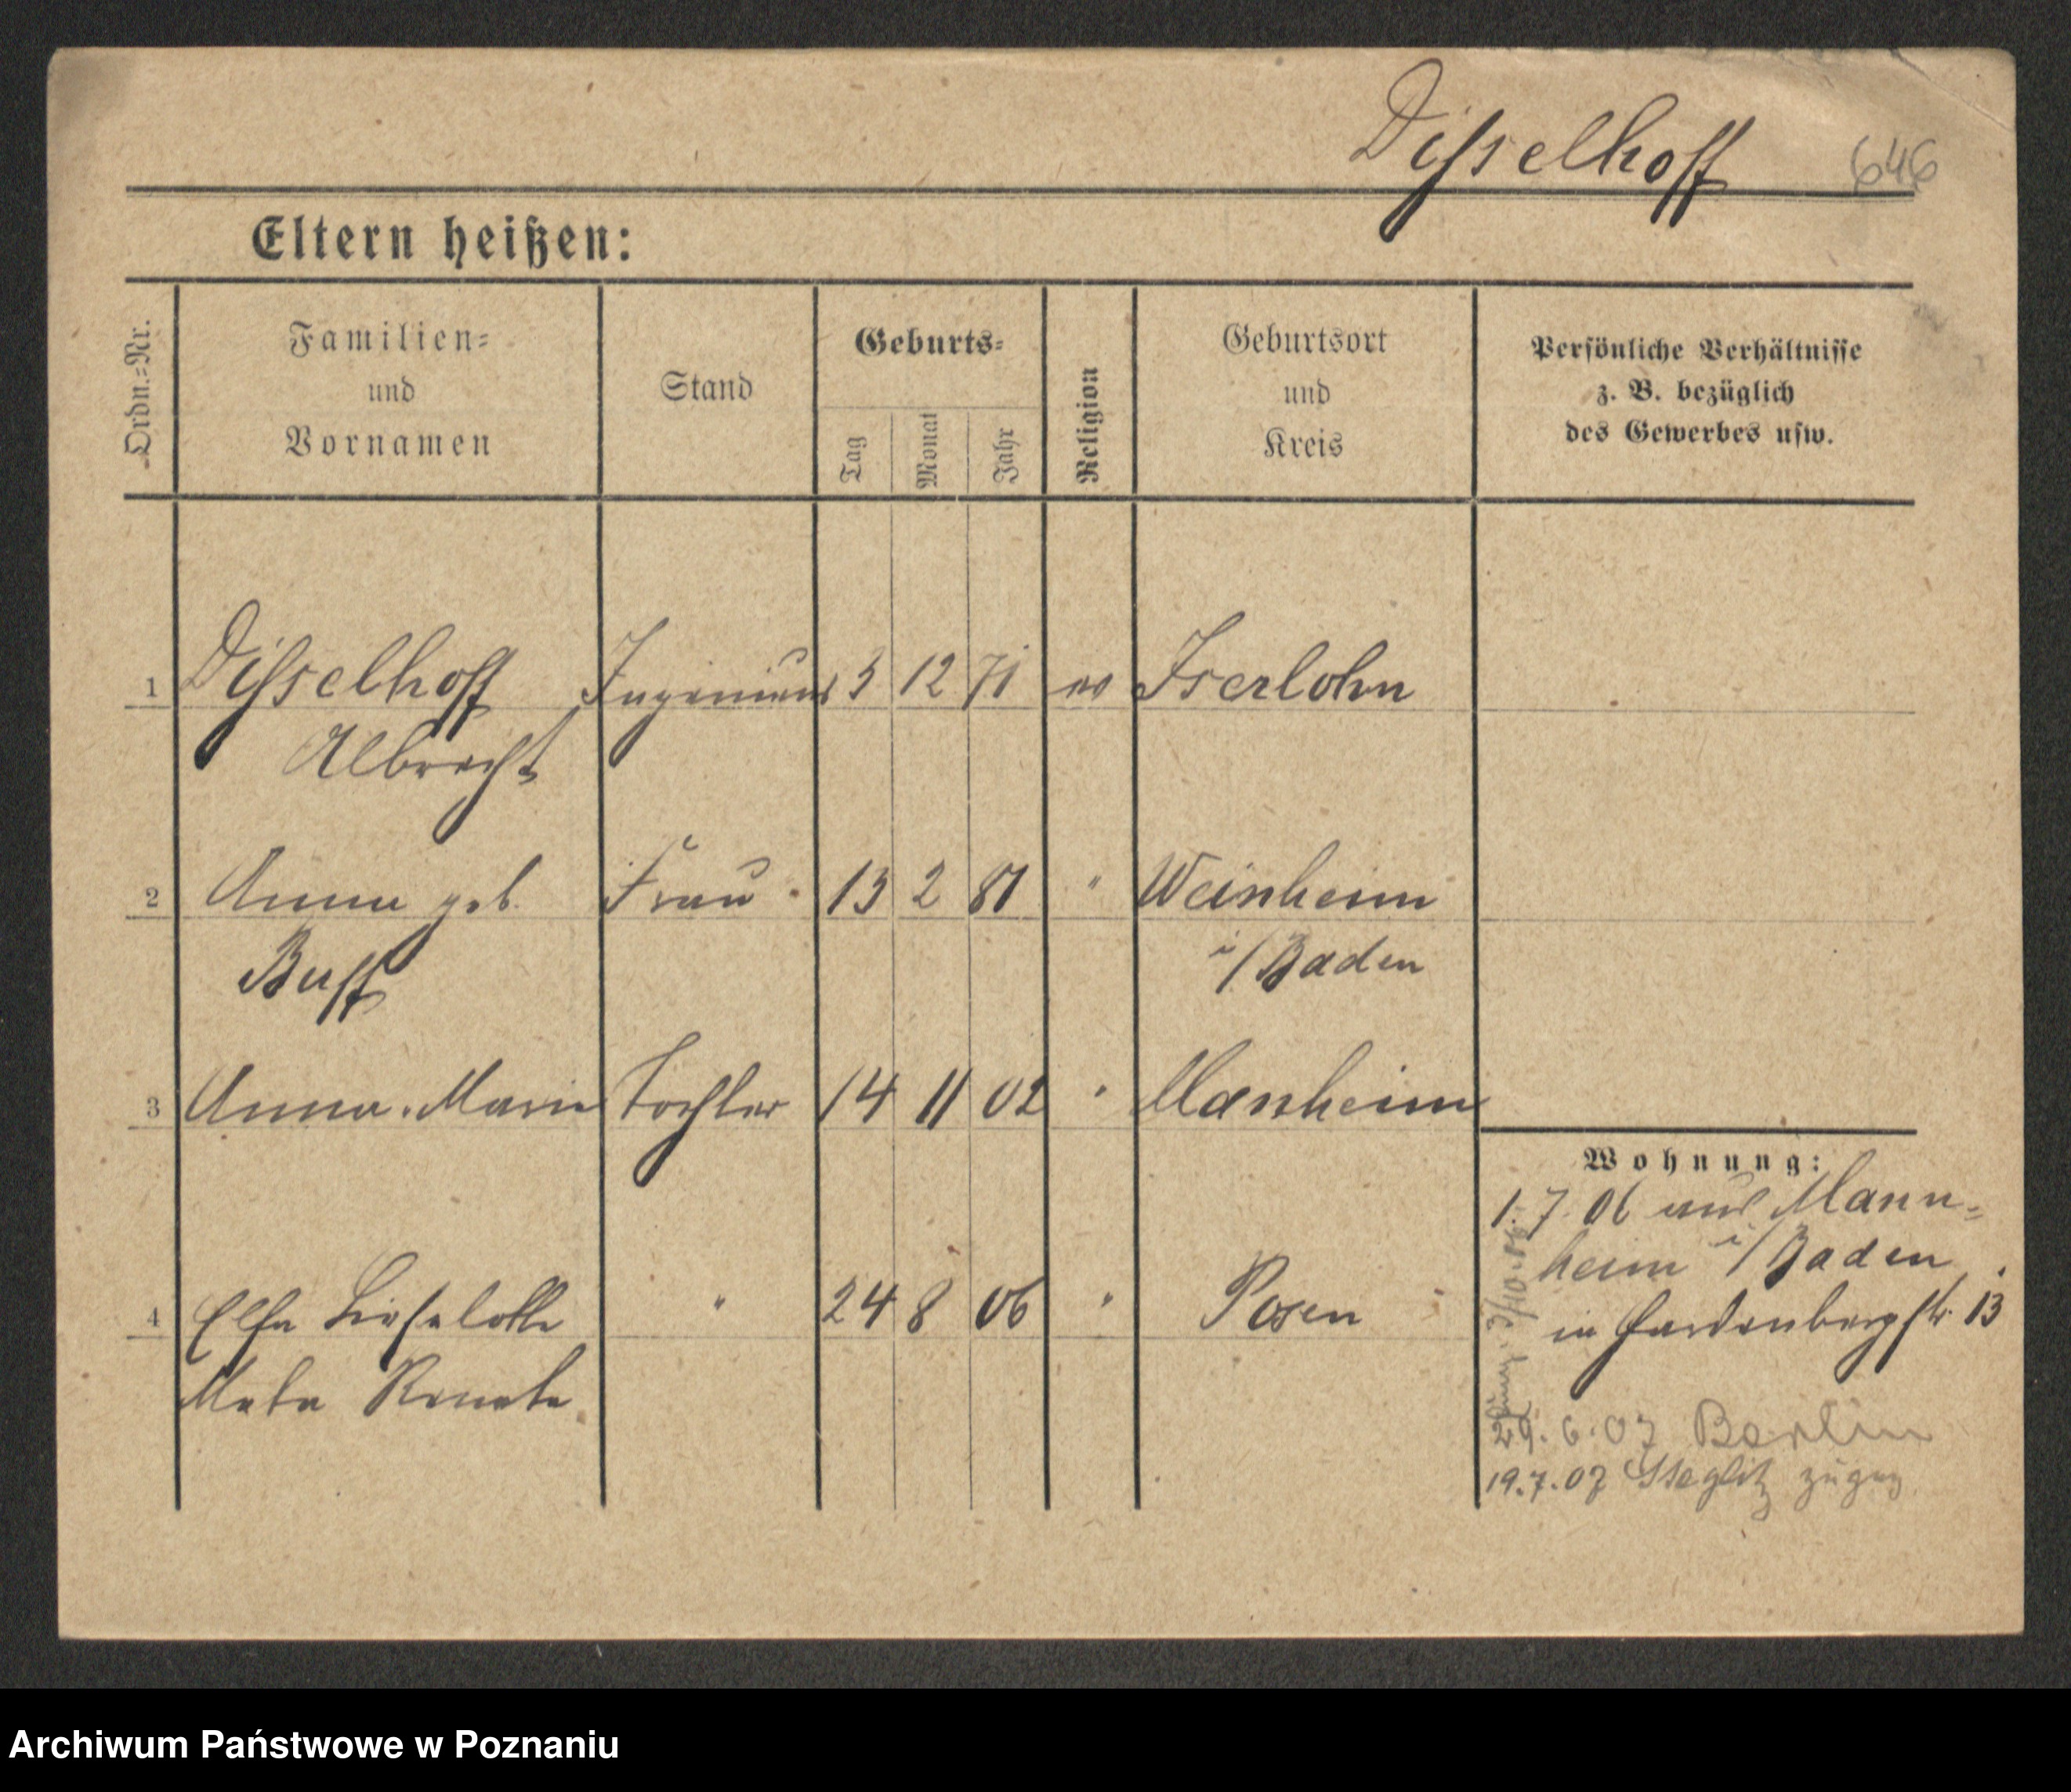 Disselhoff 646
Eltern heißen:
Ordn.=Nr.
Familien=
und
Vornamen
Stand
Geburts=
Tag
Monat
Jahr
Religion
Geburtsort
und
Kreis
Persönliche Verhältnisse
z. B. bezüglich
des Gewerbes usw.
1 Disselhoff Ingenieur 3 12 71 ev Iserlohn
Albrecht
2 Anna geb. Frau 13 2 81 " Weinheim
Buff i/Baden
3 Anna-Marie Tochter 14 11 02 " Manheim
Wohnung:
1.7.06 aus Mann=
heim i/Baden
4 Elsa Lieselotte " 24 8 06 " Posen
in Hardenbergstr. 13
Meta Renate
29.6.07 Berlin
19.7.07 Steglitz zugez.
Archiwum Państwowe w Poznaniu